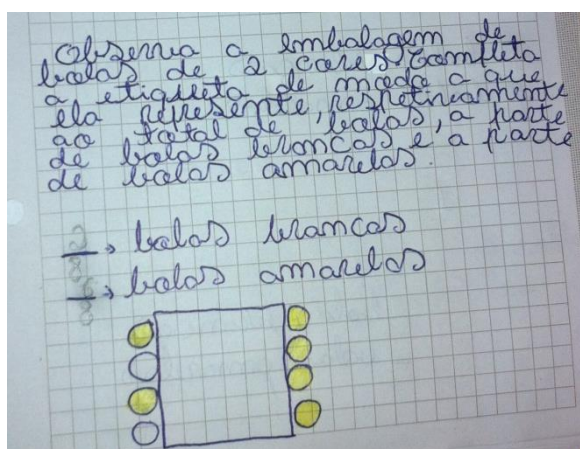 Observa a embalagem de
bolas de 2 cores. Completa
a etiqueta de modo a que
ela represente, respetivamente
ao total de bolas, a parte
de bolas brancas e a parte
de bolas amarelas.
bolas brancas
bolas amarelas